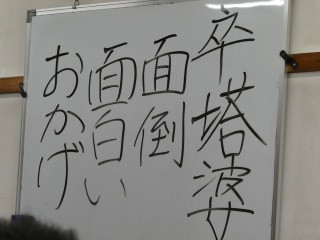 卒塔婆
面倒
面白い
おかげ